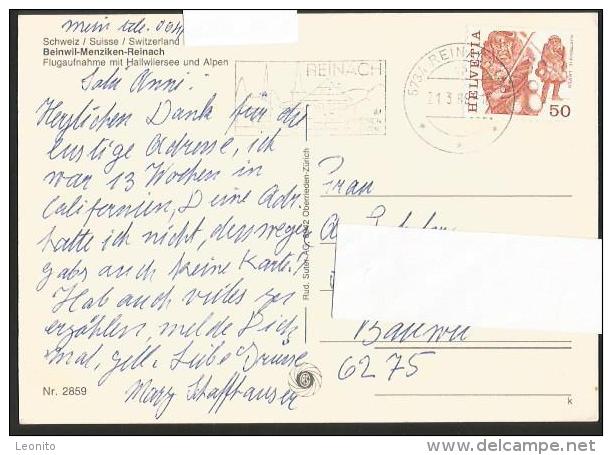 mein tele. 06
Schweiz / Suisse / Switzerland
Beinwil-Menziken-Reinach
Flugaufnahme mit Hallwilersee und Alpen
Salü Anni!
Herzlichen Dank für die
lustige Adresse, ich
war 13 Wochen in
Californien, Deine Adr.
hatte ich nicht, deswegen
gabs auch keine Karte!
Hab auch vieles zu
erzählen, melde Dich
mal, gell. Liebe Grüsse
Mary Schaffhauser
Nr. 2859
Rud. Suter AG, 8942 Oberrieden-Zürich
REINACH
5734 REINACH
21.3.8
HELVETIA
50
Frau
A.
Ballwil
6275
k
Leonito
delcampe.net